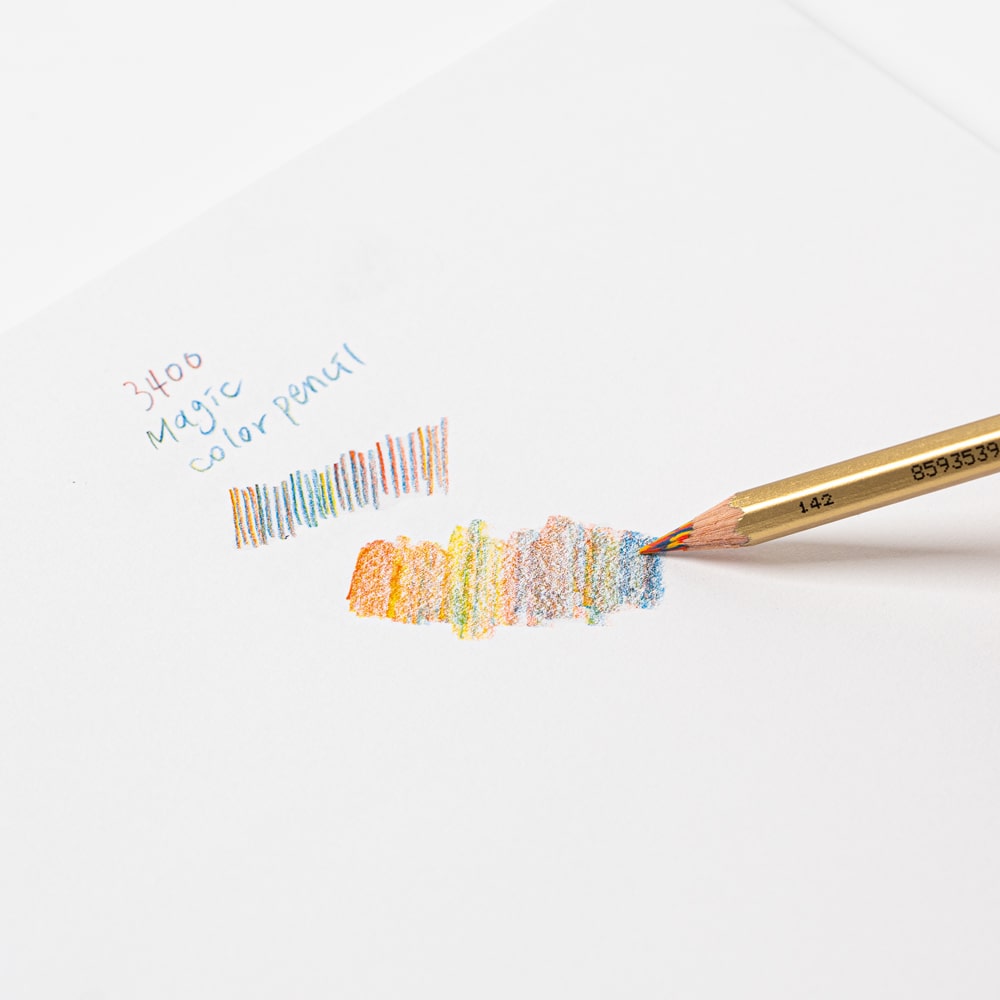 3400
Magic
color pencil
142
8593539